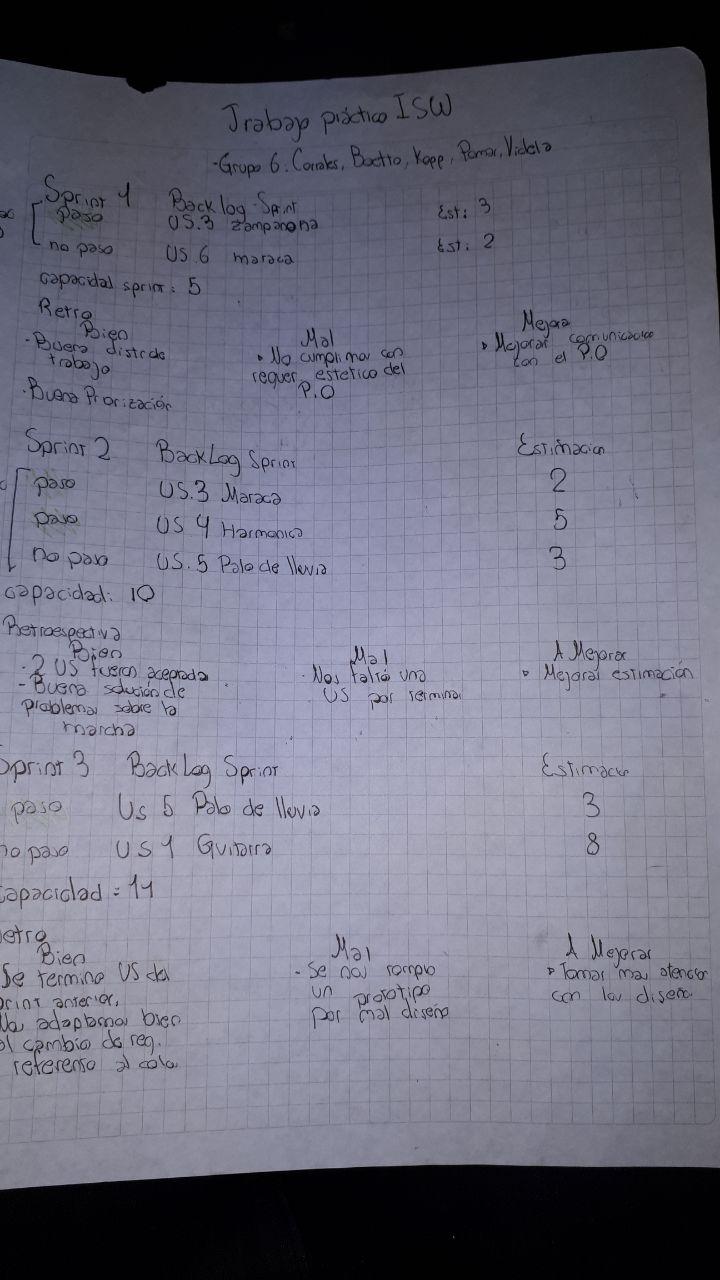 Trabajo práctico ISW
-Grupo 6. Corrales, Kopp, Pomar, Videla
Sprint 1 Backlog Sprint
paso US.3 zampoñona Est: 3
no paso US.6 maraca Est: 2
capacidad sprint: 5
Retro
Bien Mal Mejora
- Buena distr de trabajo
• No cumplimos con requer. estetico del P.O
• Mejorar comunicacion con el P.O
- Buena Priorización
Sprint 2 BackLog Sprint Estimacion
paso US.3 Maraca 2
paso US 4 Harmonica 5
no paso US.5 Palo de lluvia 3
capacidad: 10
Retroespectiva
Bien Mal A Mejorar
- 2 US fueron aceptada
- Buena solución de problemas sobre la marcha
- Nos faltó una US por terminar
• Mejorar estimación
Sprint 3 BackLog Sprint Estimacion
paso Us 5 Palo de lluvia 3
no paso US 1 Guitarra 8
capacidad = 11
etro
Bien Mal A Mejorar
Se termino US del
print anterior,
Nos adaptamos bien
al cambio de req.
referenso al cola
- Se nos rompio
un prototipo
por mal diseño
• Tomar mas atencion
con los diseño